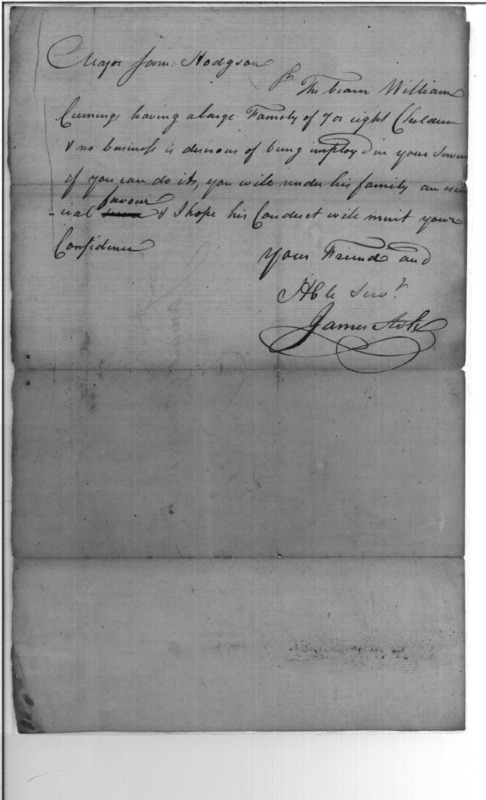 Major Sam: Hodgson
Sr. The bearer William
Cumings having a large Family of 7 or eight Children
& no business is desirous of being employd in your Service
if you can do it, you will render his family an essen
-tial favour & I hope his Conduct will merit your
Confidence
Your Friend and
Hble Servt.
James